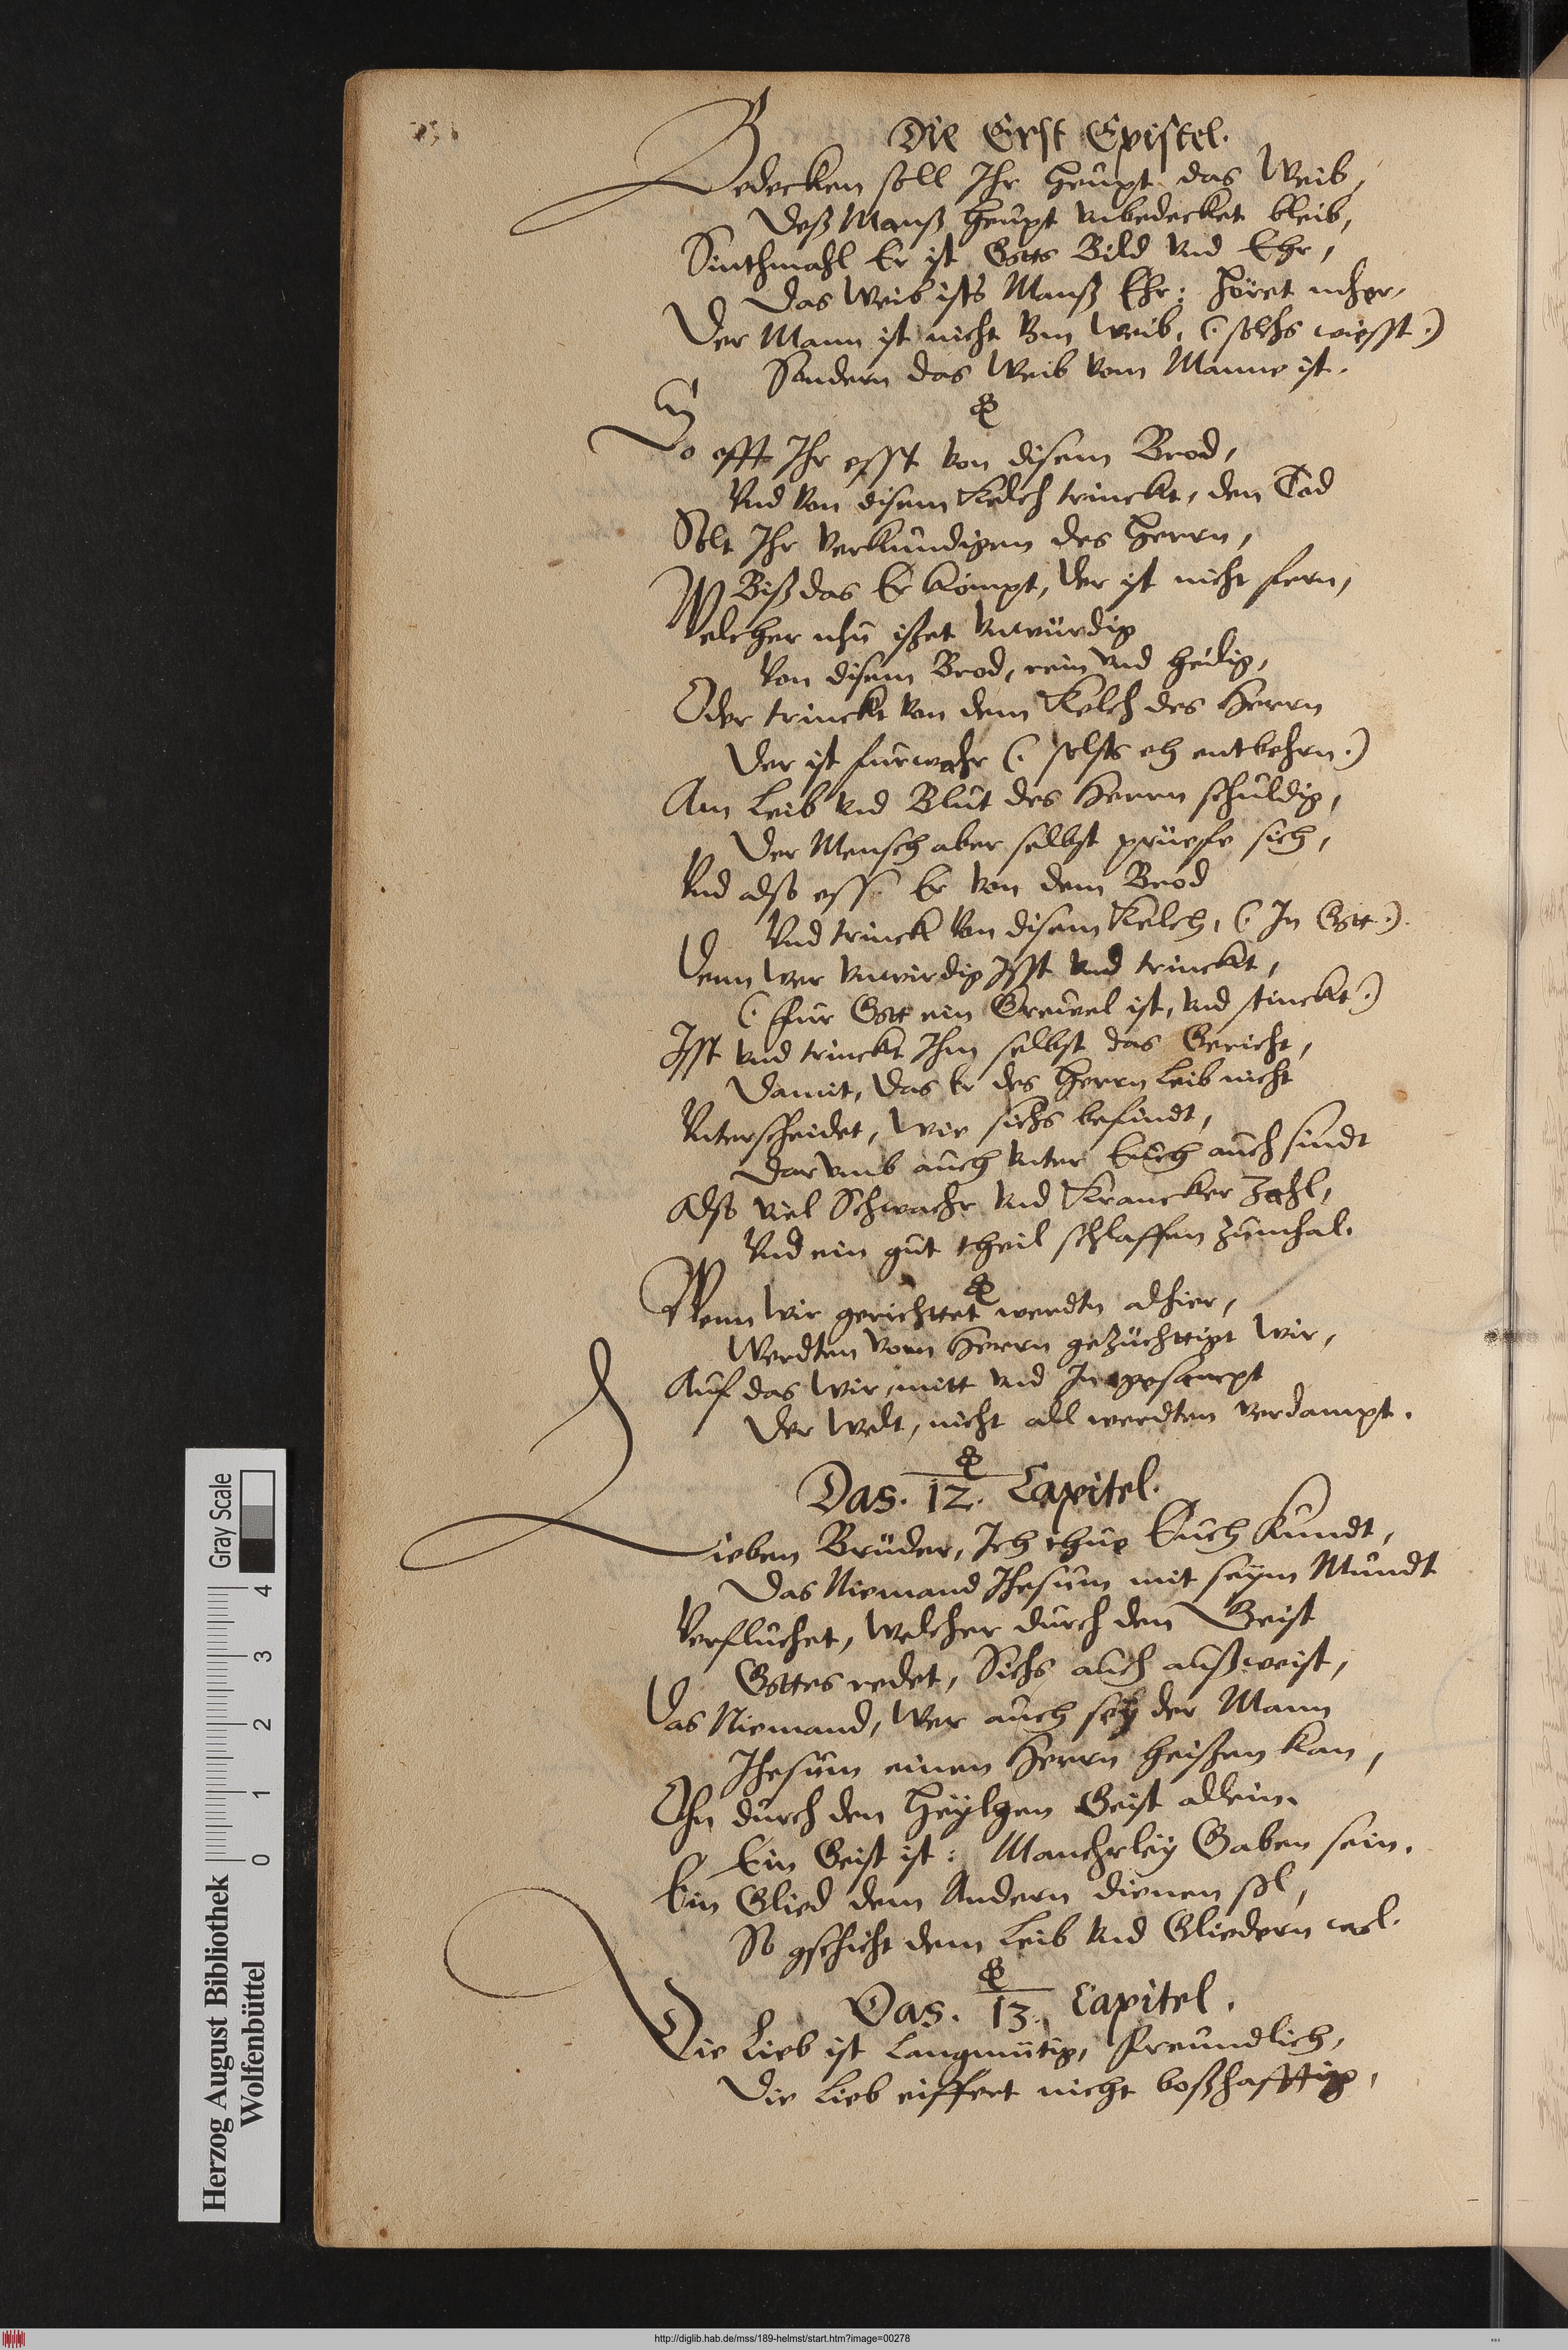 Die Erst Epistel.
Bedecken soll Ihr heupt das Weib,
Deß Manß heupt unbedecket bleib,
Sinthmahl Er ist Gotts Bild Vnd Ehr,
Das Weib ists Manß Ehr: höret mher,
Der Mann ist nicht Vm Weib, (: solchs wisst :)
Sondern das Weib Vom Manne ist.
So offt Ihr esst Von disem Brod,
Vnd Von disem Kelch trinckt, den Tod
Solt Ihr Verkündigen des Herrn,
Biß das Er kömpt, der ist nicht fern,
Welcher nhu ißet Vnwürdig
Von disem Brod, rein Vnd heilig,
Oder trinckt Von dem Kelch des Herrn
Der ist fürwahr (: solsts eh entbehrn :)
Am Leib Vnd Blut des Herrn schuldig,
Der Mensch aber selbst prüefe sich,
Vnd also ess Er Von dem Brod
Vnd trinck Von disem Kelch, (: In Gott :)
Denn Wer Vnwirdig Isst Vnd trinckt,
(: für Gott ein Greuel ist, Vnd stinckt :)
Isst Vnd trinckt Ihm selbst das Gericht,
Damit, das Er des Herrn Leib nicht
Vnterscheidet, Wie sichs befindt,
Darumb auch Vnter Euch auch sindt
Also Viel Schwacher Vnd Krancker Zahl,
Vnd ein gut theil schlaffen zumhal.
Wenn Wir gerichttet werdtn alhier,
Werdten Vom Herrn gezüchttigt Wir,
Auf das Wir, mitt Vnd Ingesampt
Der Welt, nicht all werdten Verdampt.
Das. 12. Capitel.
Lieben Brüder, Ich thue Euch Kundt,
Das Niemand Jhesum mit seym Mundt
Verfluchet, Welcher durch den Geist
Gottes redet, Sichs auch außweist,
Das Niemand, Wer auch sey der Mann
Jhesum einen Herrn heißen kan,
Ohn durch den Heylgen Geist allein.
Ein Geist ist: Mancherley Gaben sein.
Ein Glied dem Andern dienen sol,
So gschicht dem Leib Vnd Gliedern wol.
Das. 13. Capitel.
Die Lieb ist Langmütig, freundlich,
Die Lieb eiffert nicht boßhafftig,
Herzog August Bibliothek
Wolfenbüttel
0 1 2 3 4
Gray Scale
http://diglib.hab.de/mss/189-helmst/start.htm?image=00278